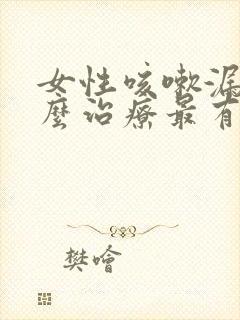 女性咳嗽漏
麼治療最有
樊噲